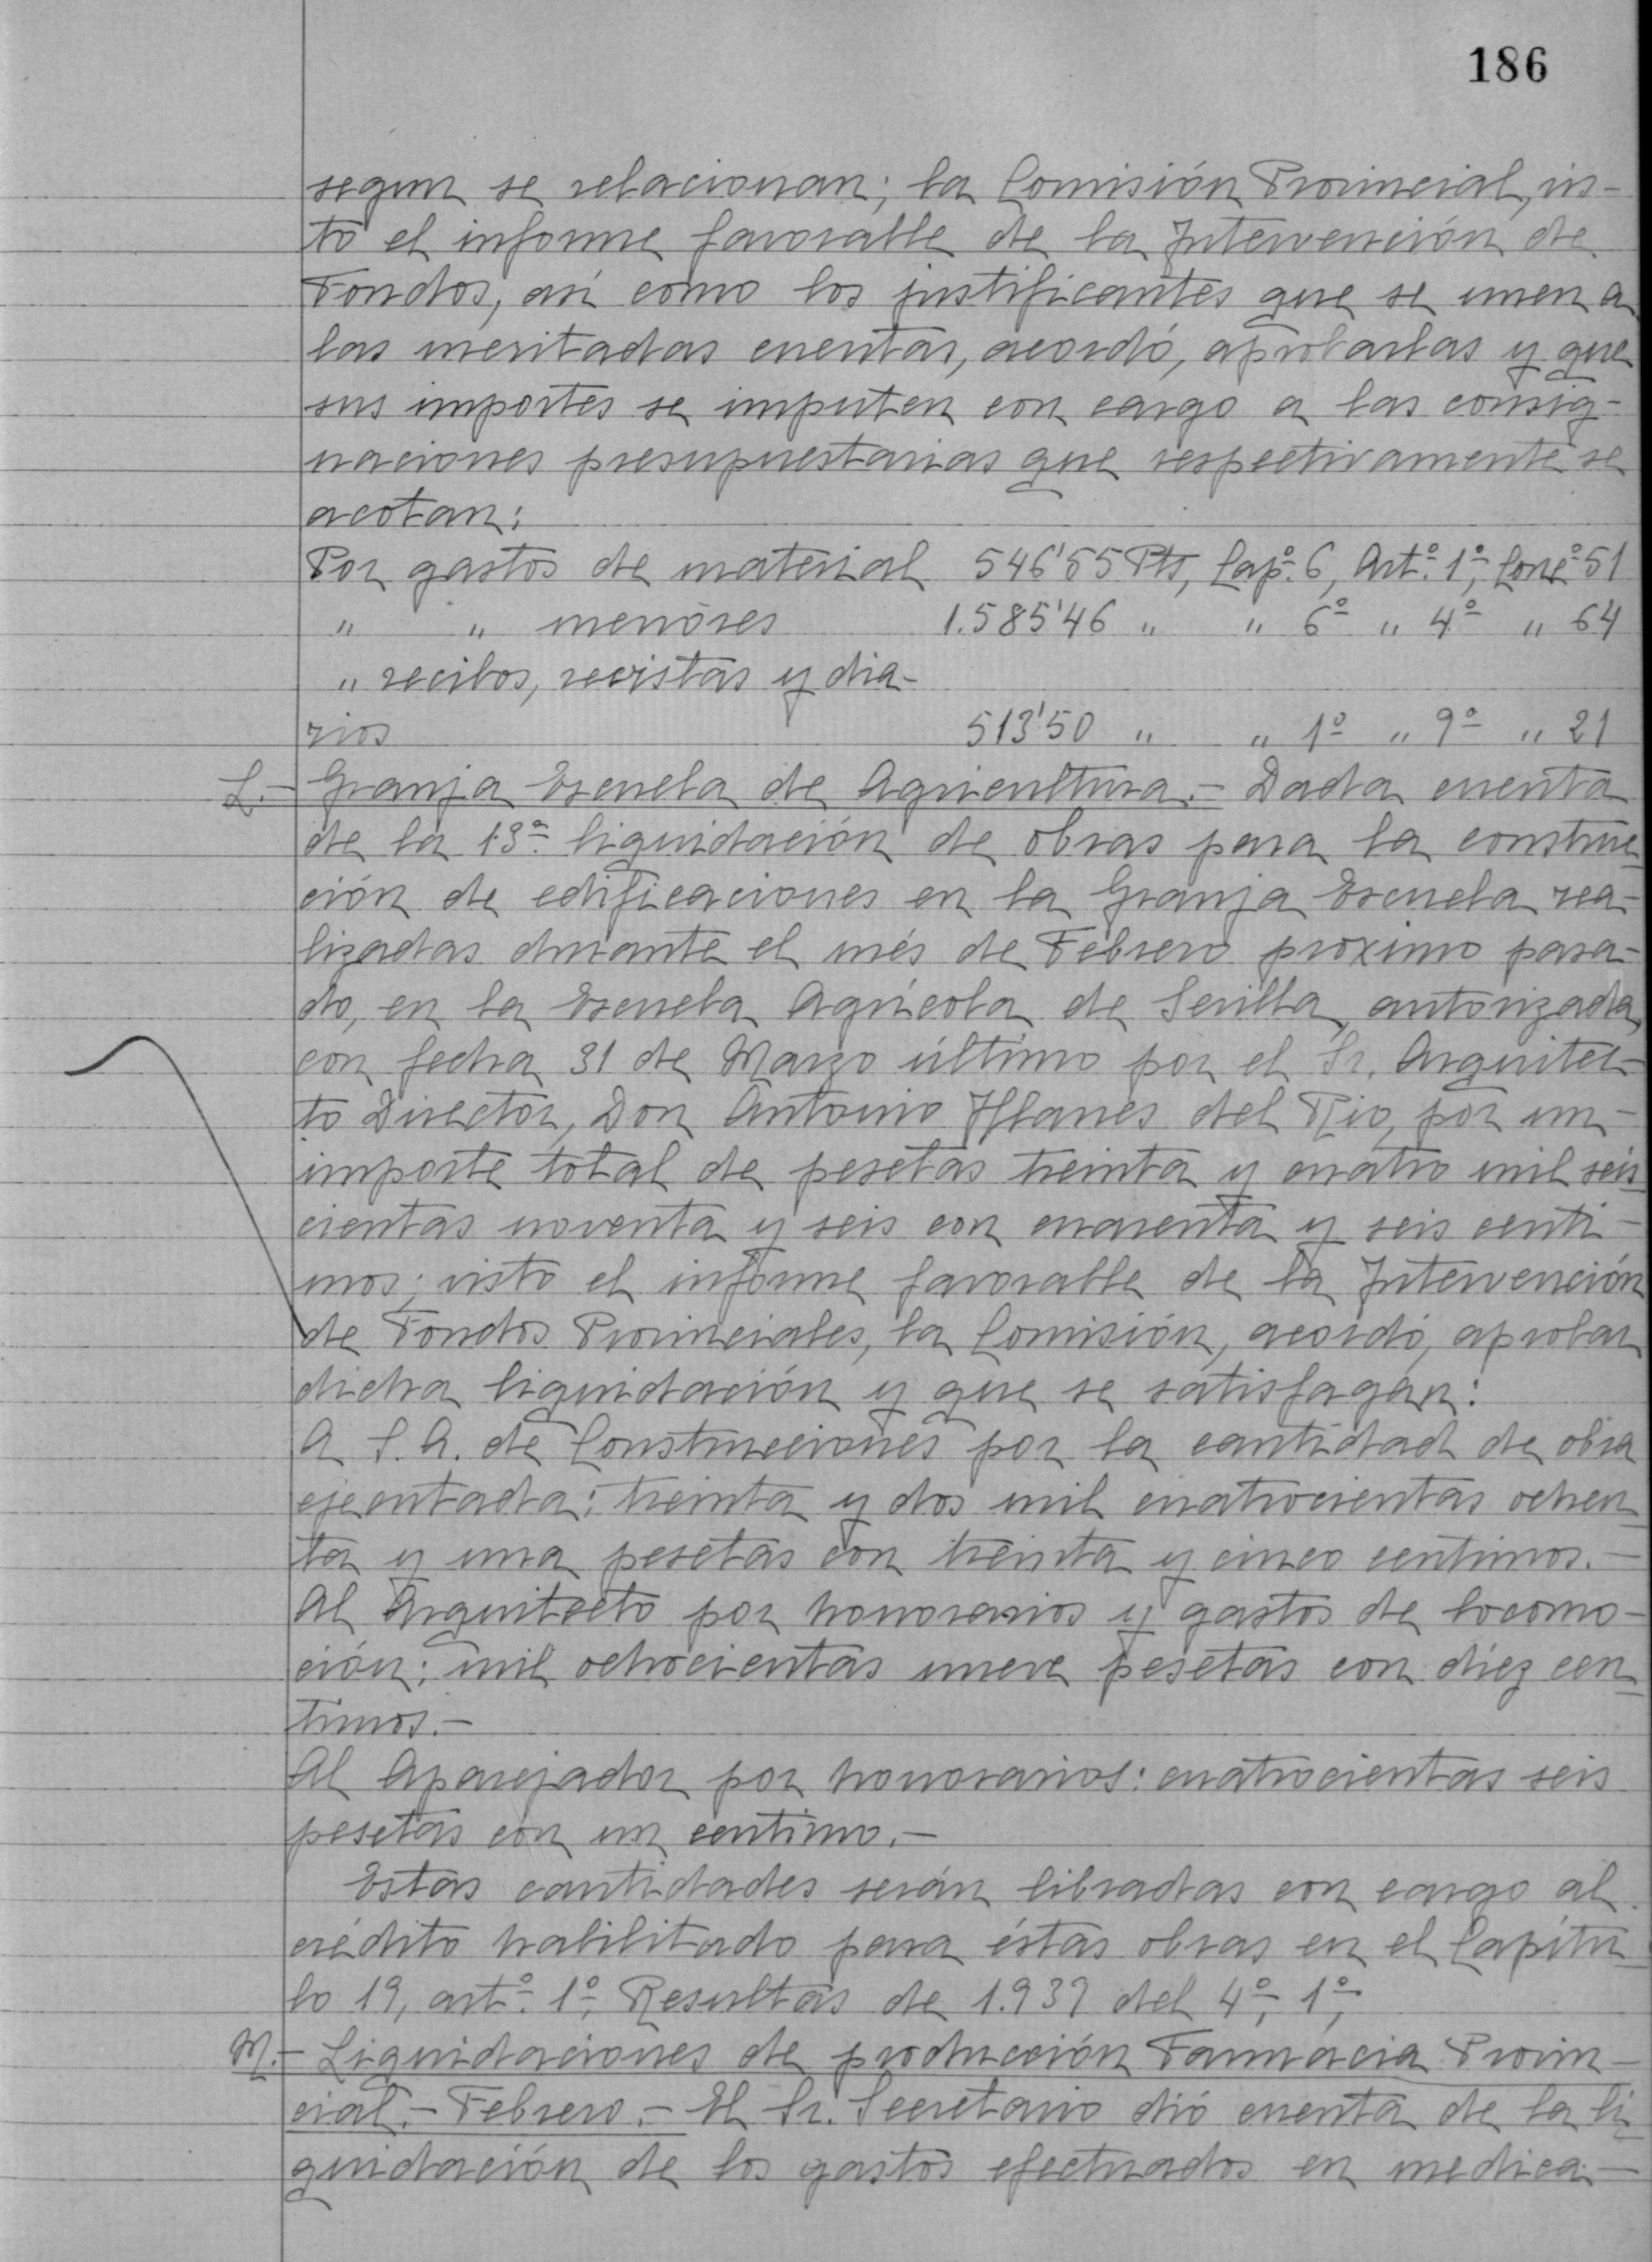 186
segun se relacionan; la Comisión Provincial, vis-
to el informe favorable de la Intervención de
Fondos, así como los justificantes que se unen a
las meritadas cuentas, acordó, aprobarlas y que
sus importes se imputen con cargo a las consig-
naciones presupuestarias que respectivamente se
acotan:
Por gastos de material 546'55 Pts, Capº. 6, Artº. 1º, Concº 51
" " menores 1.585'46 " " 6º " 4º " 64
" recibos, revistas y dia-
rios 513'50 " " 1º " 9º " 21
L.- Granja Escuela de Agricultura.- Dada cuenta
de la 13ª liquidación de obras para la construc-
ción de edificaciones en la Granja Escuela rea-
lizadas durante el més de Febrero proximo pasa-
do, en la Escuela Agrícola de Sevilla, autorizada
con fecha 31 de Marzo último por el Sr. Arquitec-
to Director, Don Antonio Illanes del Rio, por un-
importe total de pesetas treinta y cuatro mil seis-
cientas noventa y seis con cuarenta y seis centi-
mos; visto el informe favorable de la Intervención
de Fondos Provinciales, la Comisión, acordó, aprobar
dicha liquidación y que se satisfagan:
A S.A. de Construcciones por la cantidad de obra
ejecutada: treinta y dos mil cuatrocientas ochen-
ta y una pesetas con treinta y cinco centimos.-
Al Arquitecto por honorarios y gastos de locomo-
ción: mil ochocientas nueve pesetas con diez cen-
timos.-
Al Aparejador por honorarios: cuatrocientas seis
pesetas con un centimo.-
Estas cantidades serán libradas con cargo al
crédito habilitado para éstas obras en el Capítu-
lo 19, artº. 1º, Resultas de 1.939 del 4º, 1º,
M.- Liquidaciones de producción Farmacia Provin-
cial.- Febrero.- El Sr. Secretario dió cuenta de la li-
quidación de los gastos efectuados en medica-